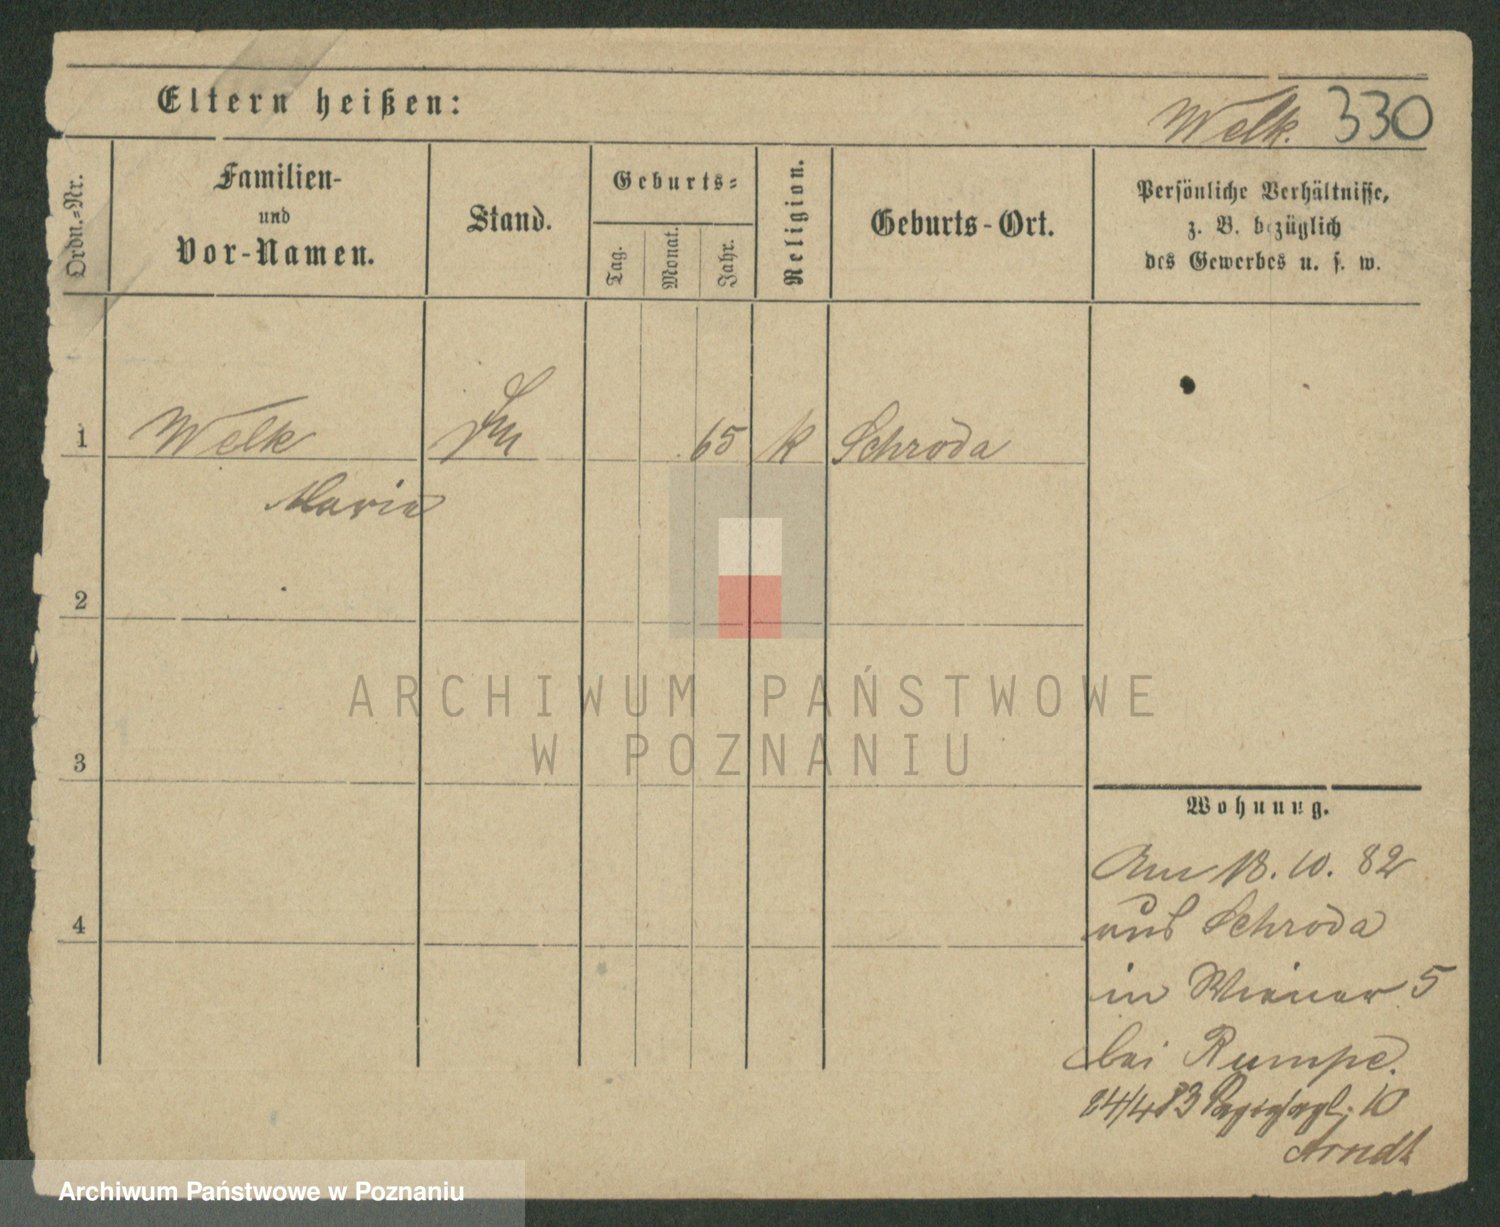 Eltern heißen:
Welk. 330
Ordn.-Nr.
Familien-
und
Vor-Namen.
Stand.
Geburts-
Tag.
Monat.
Jahr.
Religion.
Geburts-Ort.
Persönliche Verhältnisse,
z. B. bezüglich
des Gewerbes u. s. w.
1 Welk 65 k Schroda
Marie
2
3
4
Wohnung.
Am 18. 10. 82
aus Schroda
in Wiener 5
bei Rumpe.
24/4 83 10
Arndt
ARCHIWUM PAŃSTWOWE
W POZNANIU
Archiwum Państwowe w Poznaniu